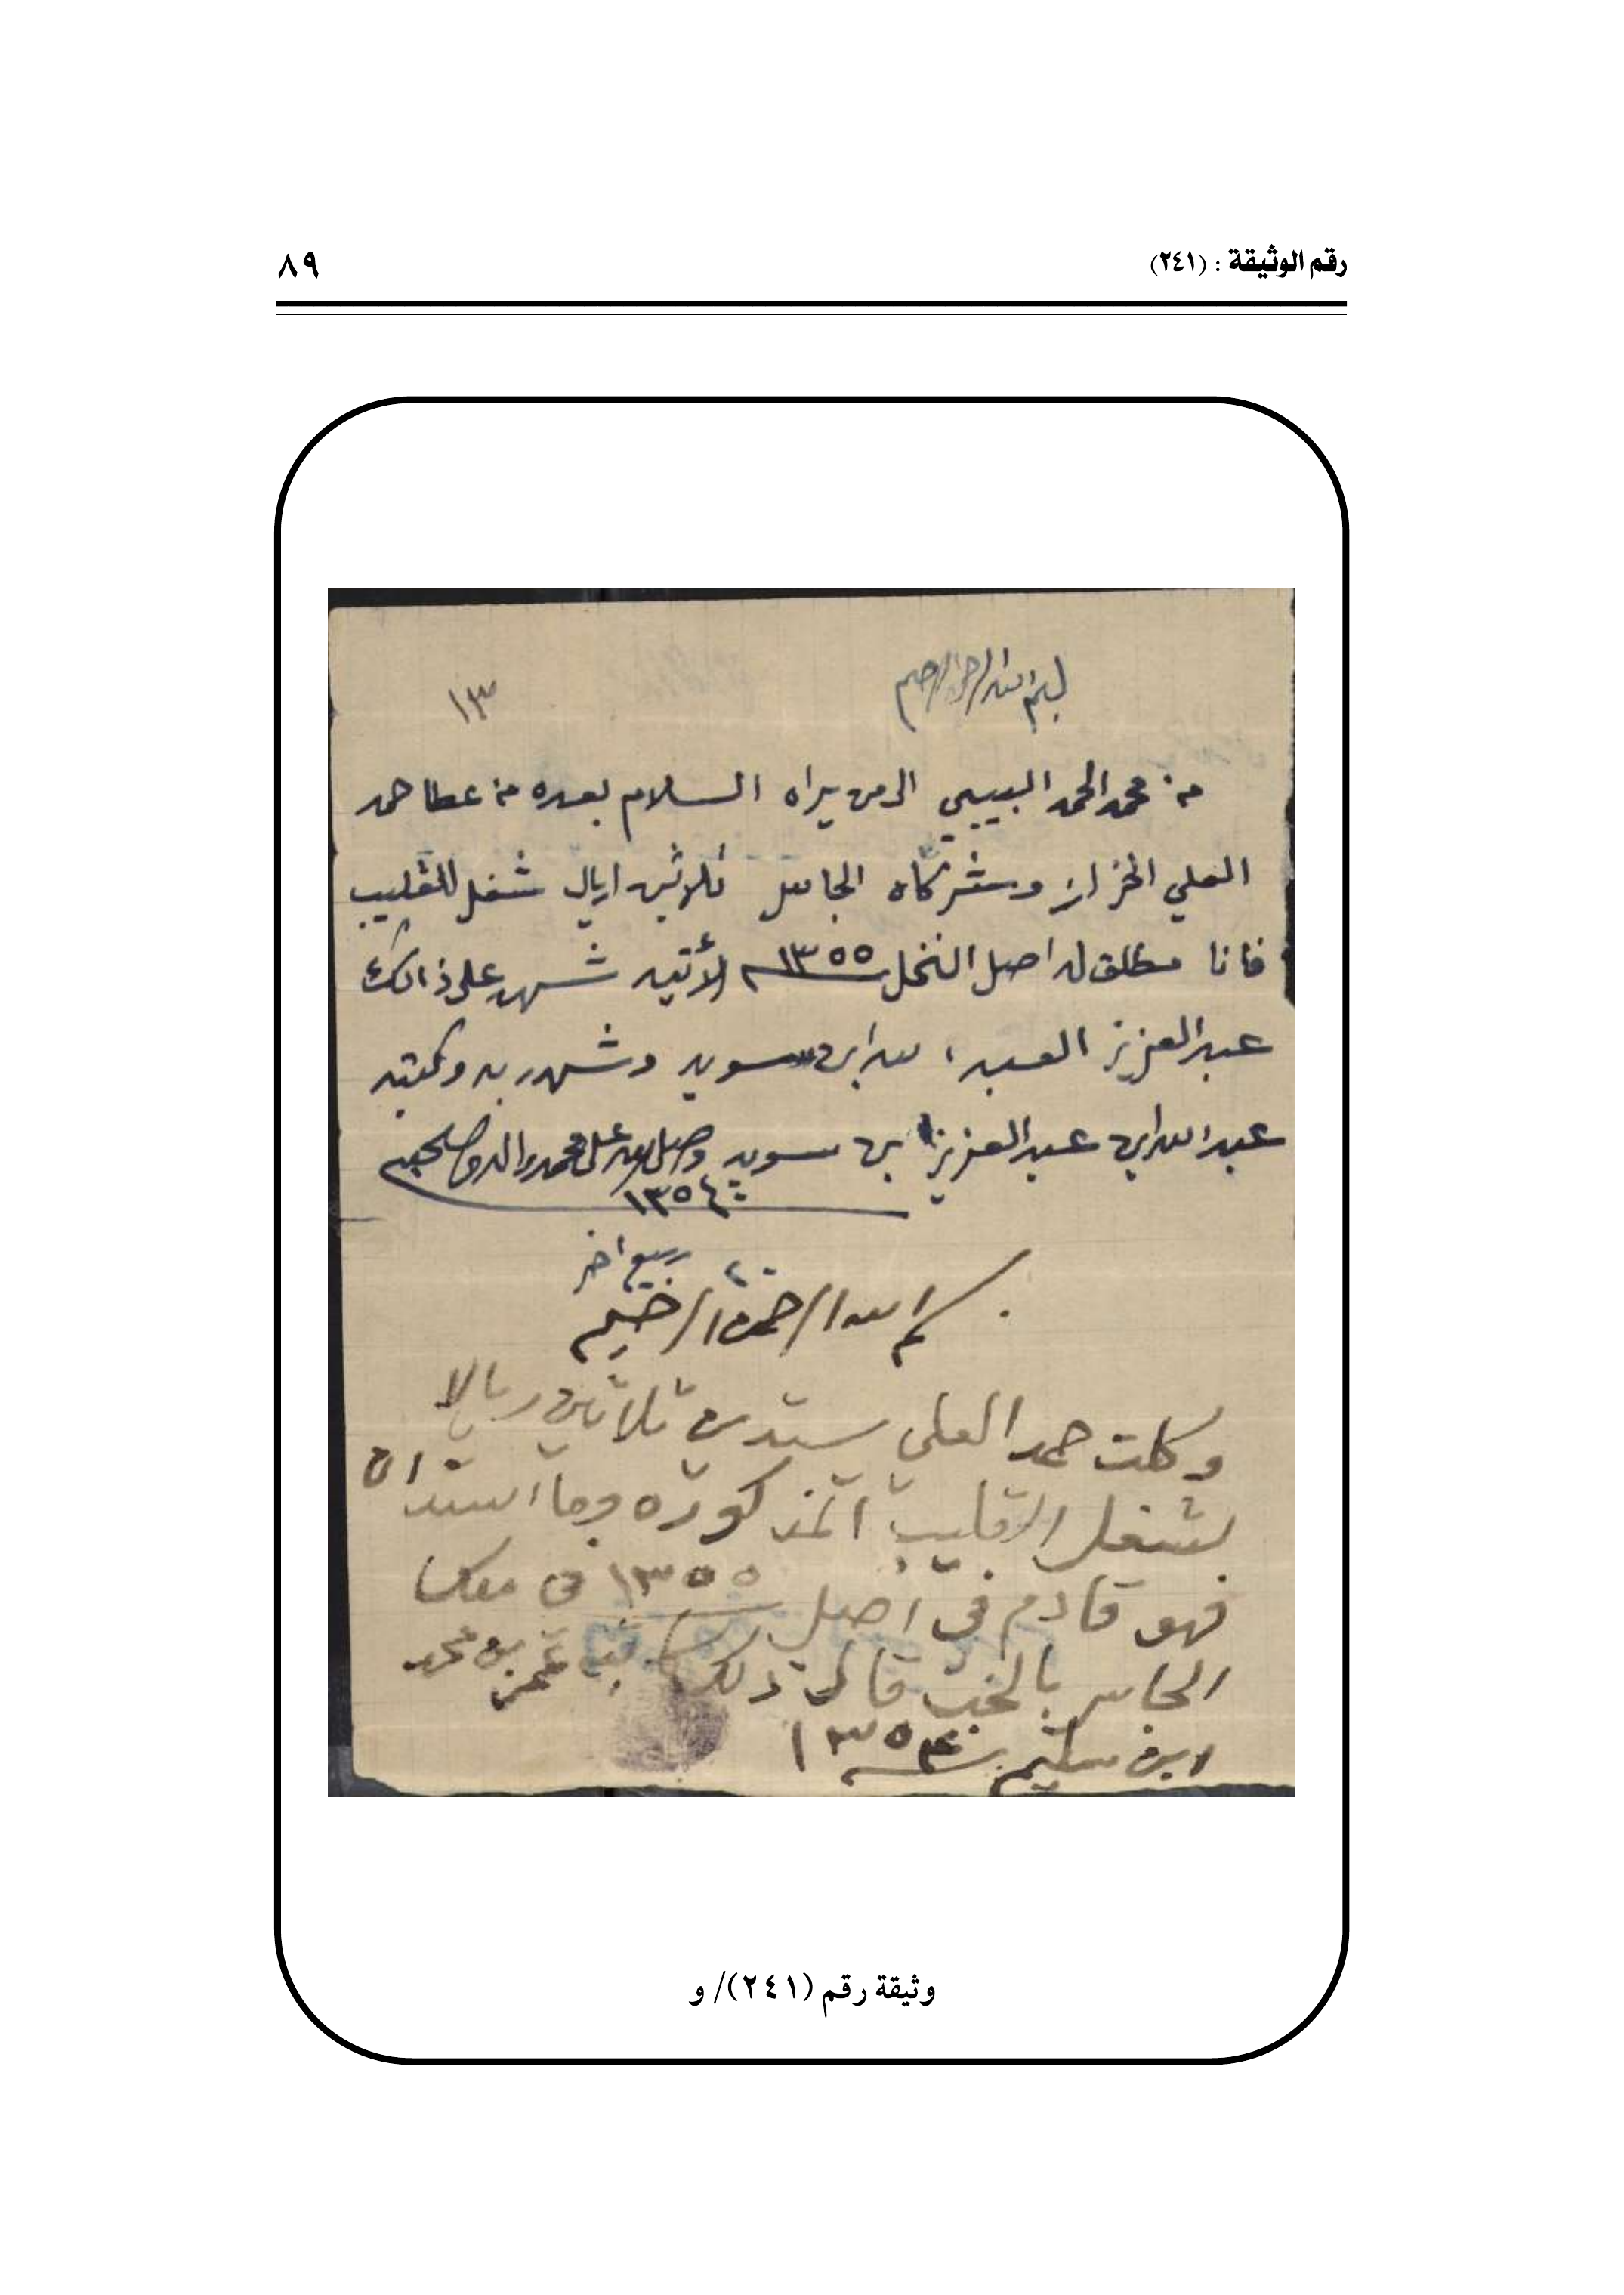 رقم الوثيقة : (٢٤١)
٨٩
بسم الله الرحمن الرحيم
١٣
من محمد الحمد البييبي الى من يراه السلام بعده من عطا حمد
العلي الخزاز وشركاه الجاسر ثلاثين اريال شغل للقليب
فانا مطلق له اصل النخل ١٣٥٥ شهد على ذالك
عبد العزيز العبد الله ابن سويد وشهد به وكتبه
عبد الله ابن عبد العزيز بن سويد وصلى الله على محمد واله وصحبه
١٣٥٤
ربيع اخر
٢٠
بسم الله الرحمن الرحيم
وكلت حمد العلي يستدين ثلاثين ريالا
بشغل القليب المذكوره وما استدان
فهو قادم في اصل ١٣٥٥ في ملك
الجاسر بالخب قال ذلك عمر بن محمد
ابن سليم ١٣٥٤
وثيقة رقم (٢٤١)/ و